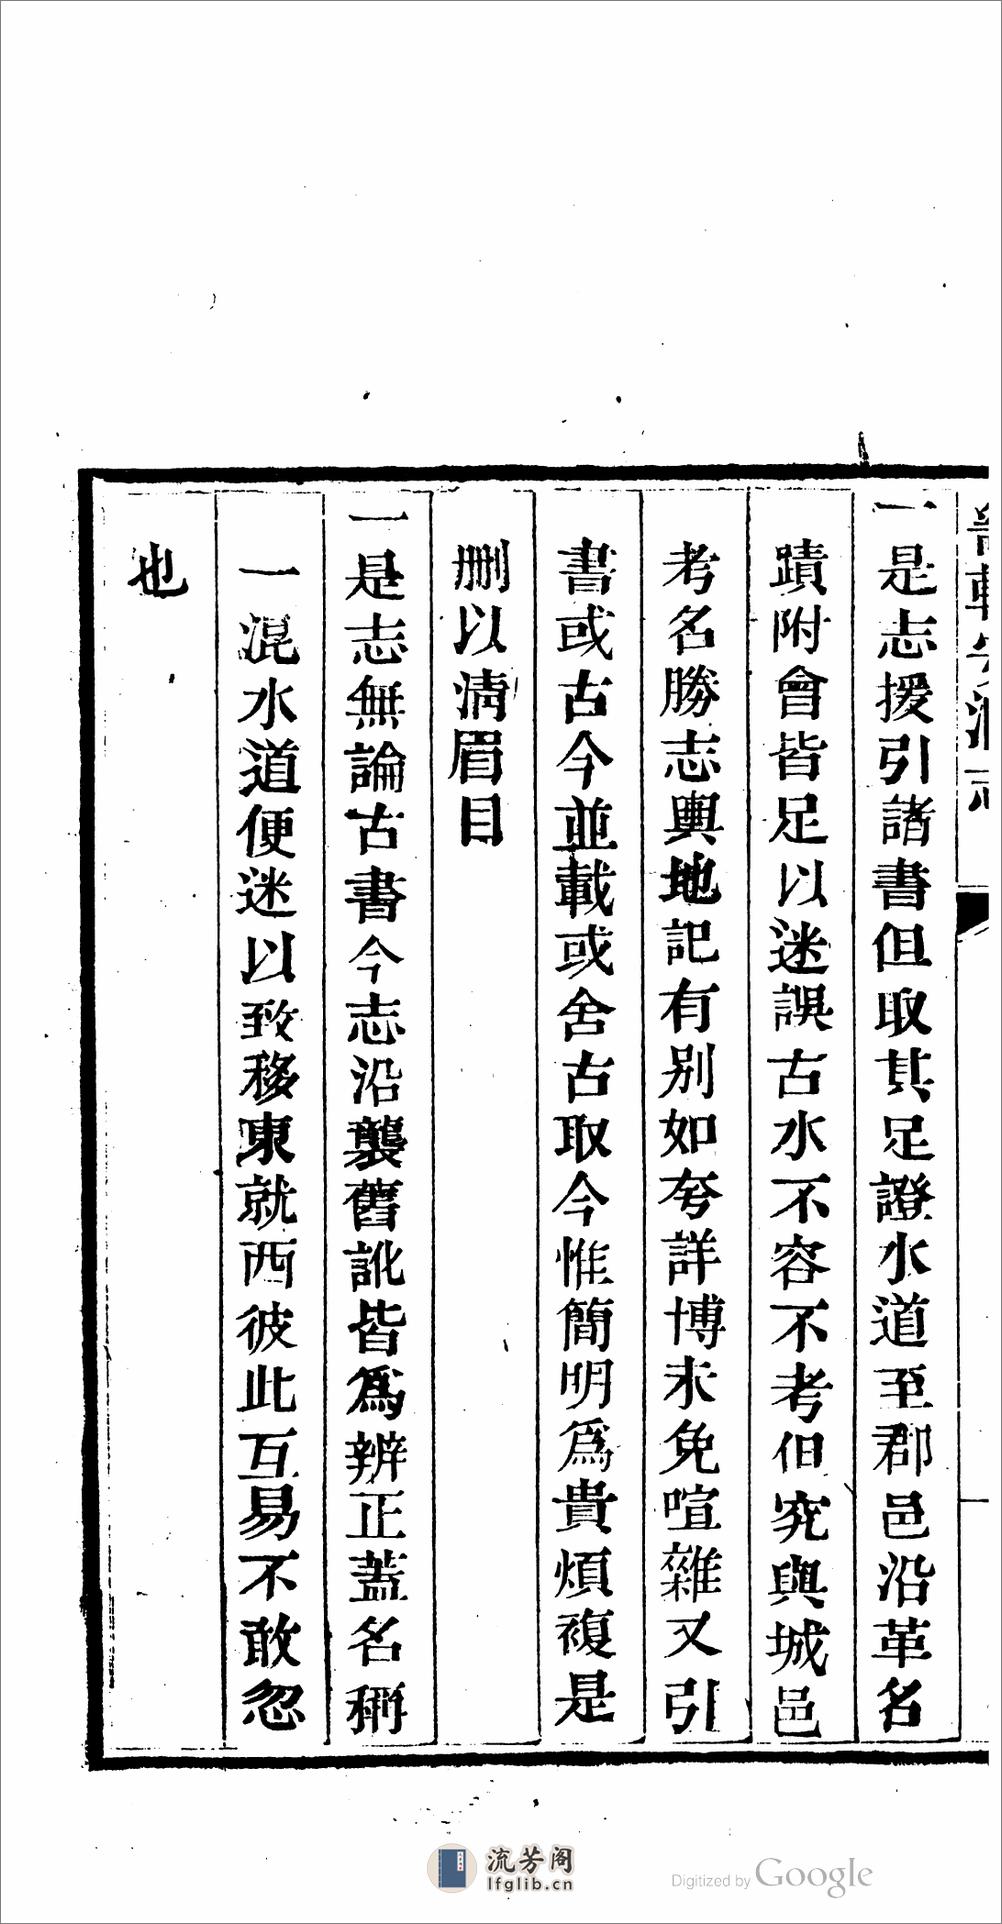 一是志援引諸書但取其足證水道至郡邑沿革名
蹟附會皆足以迷誤古水不容不考但究與城邑
考名勝志輿地記有别如夸詳博未免喧雜又引
書或古今並載或舍古取今惟簡明爲貴煩複是
删以清眉目
一是志無論古書今志沿襲舊訛皆爲辨正蓋名稱
一混水道便迷以致移東就西彼此互易不敢忽
也
流芳阁
lfglib.cn
Digitized by Google